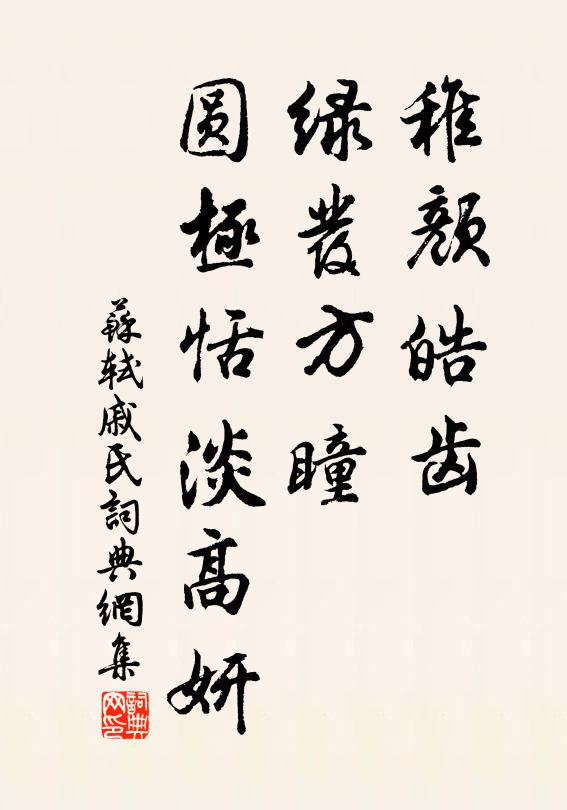 稚顔皓齿
绿發方瞳
圆極恬淡高妍
蘇軾戚氏詞典網集
詞典网印